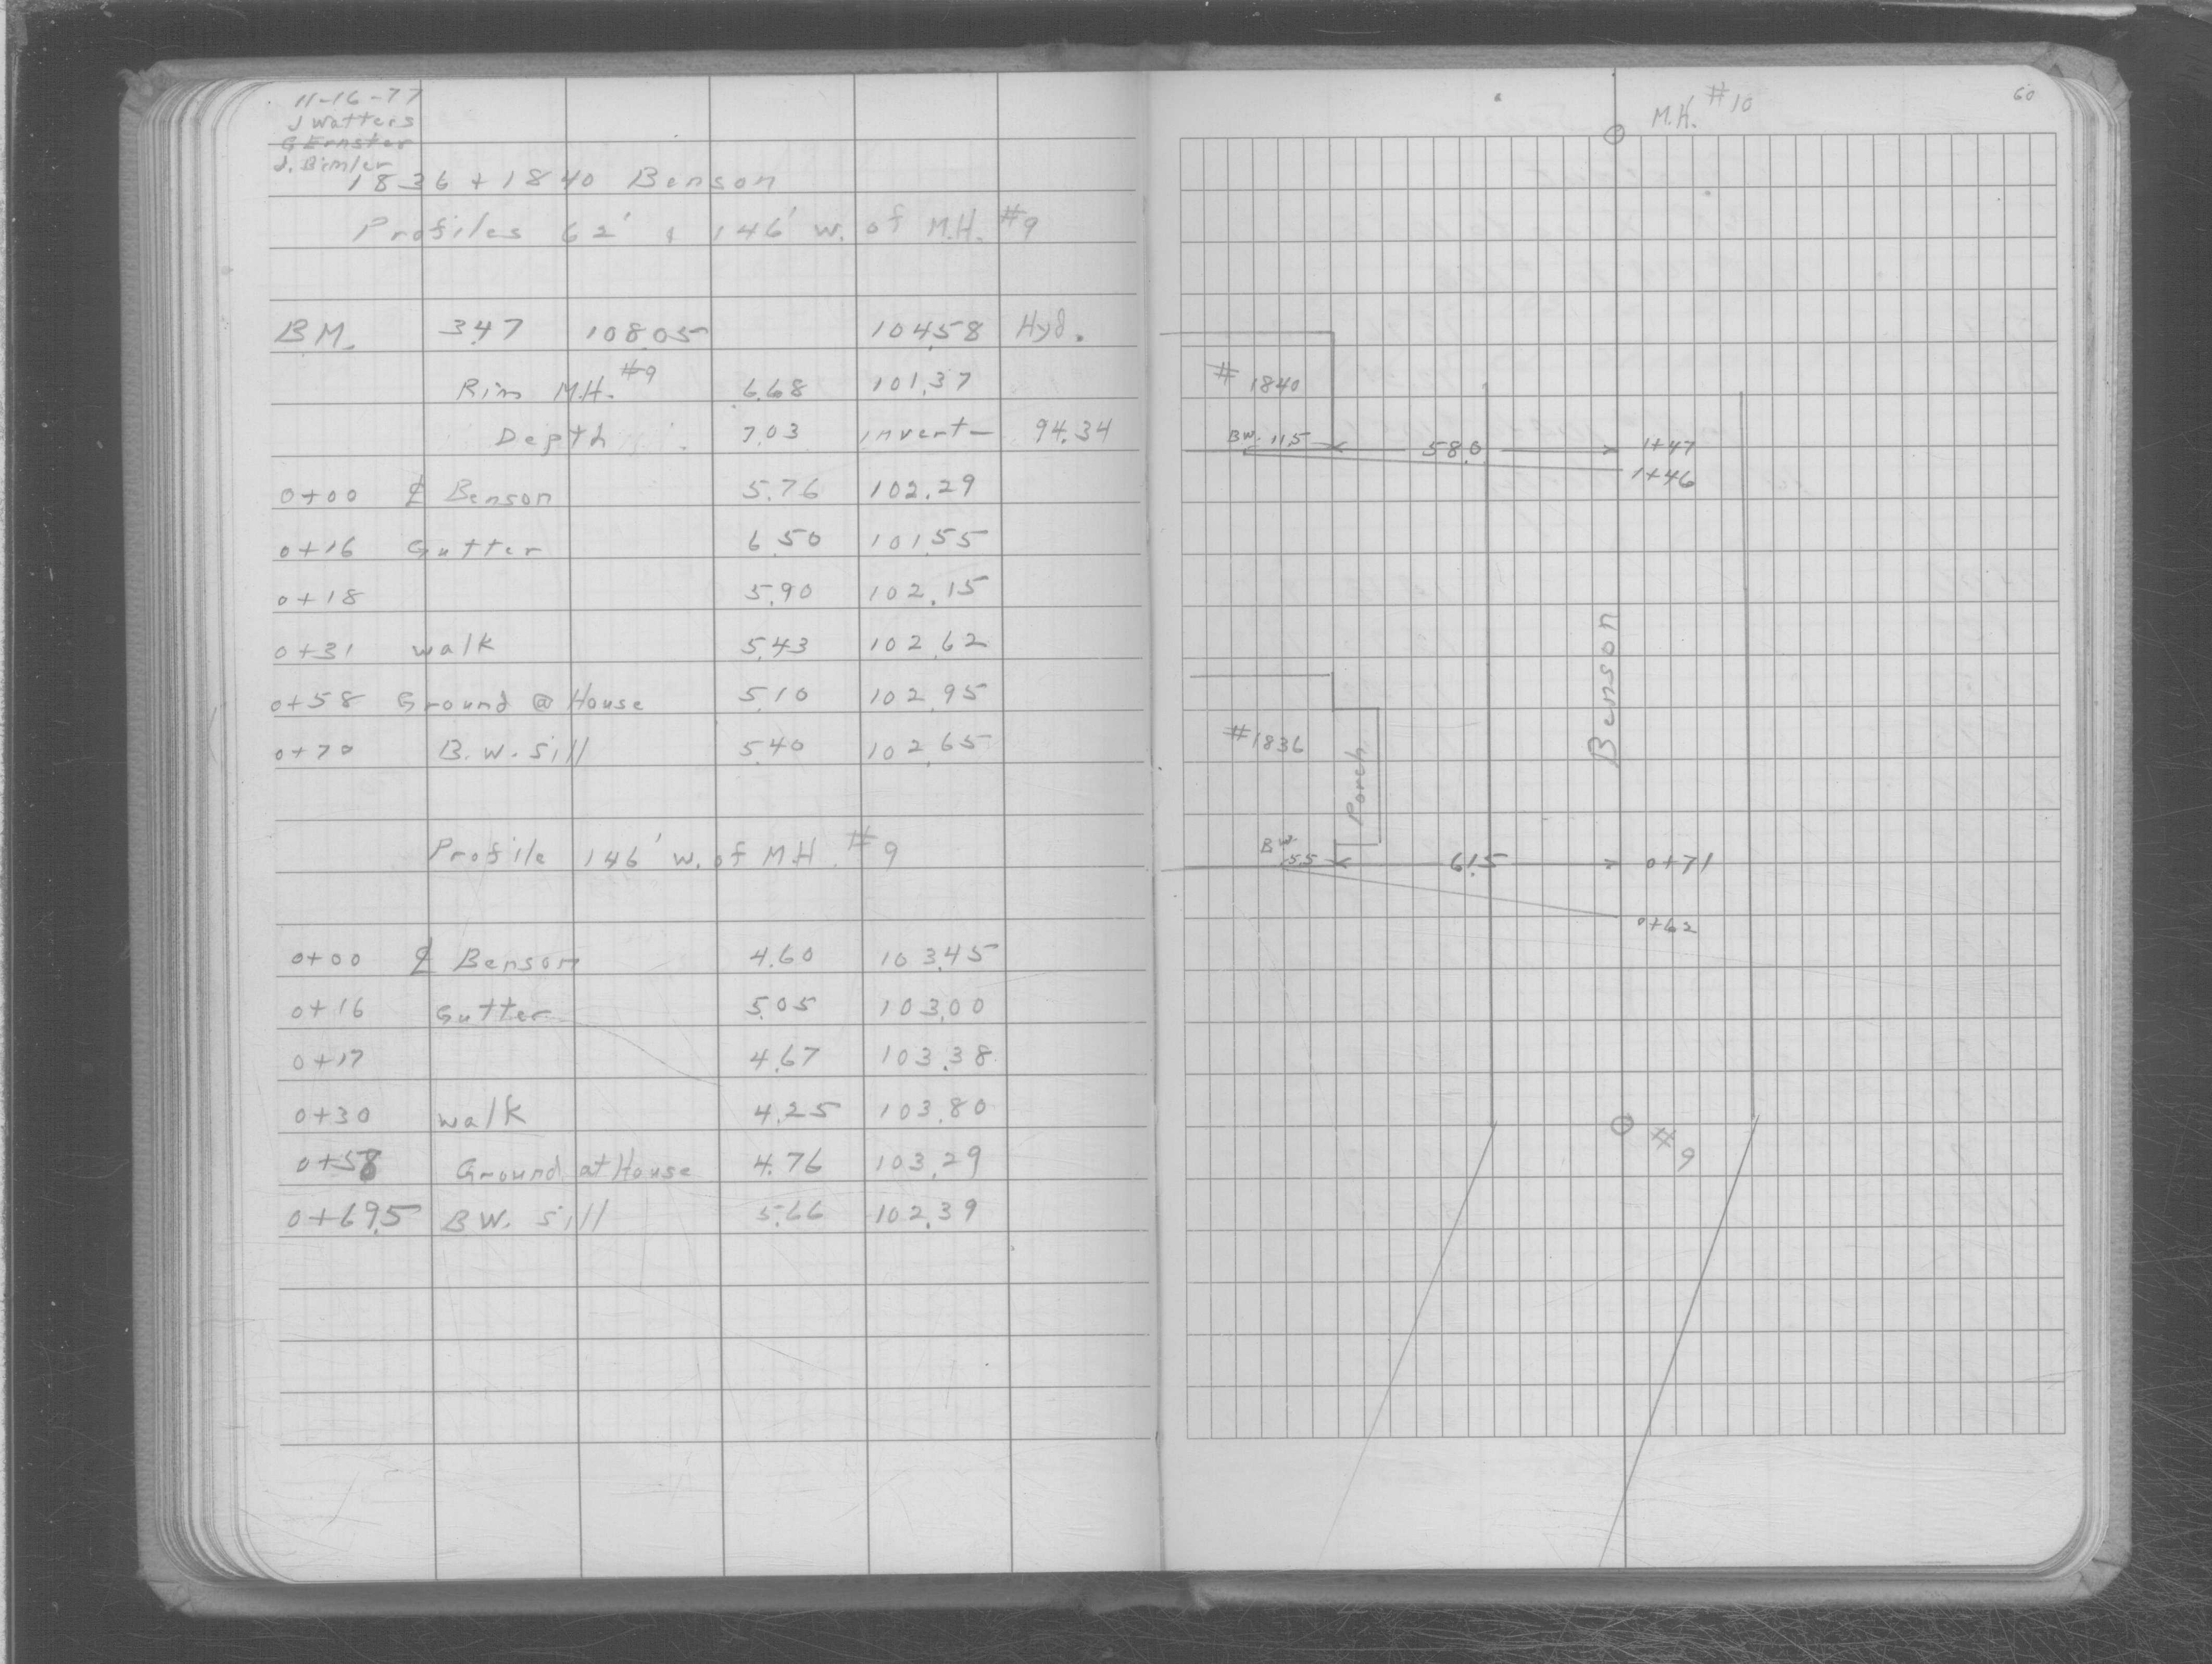 11-16-77
J Watters
G Ernster
J. Bimler
1836 + 1840 Benson
Profiles 62' & 146' w. of M.H. #9
BM. 3.47 108.05 104.58 Hyd.
Rim M.H. #9 6.68 101.37
Depth 7.03 invert- 94.34
0+00 ℄ Benson 5.76 102.29
0+16 Gutter 6.50 101.55
0+18 5.90 102.15
0+31 walk 5.43 102.62
0+58 Ground @ House 5.10 102.95
0+70 B.W. sill 5.40 102.65
Profile 146' w. of M.H. #9
0+00 ℄ Benson 4.60 103.45
0+16 Gutter 5.05 103.00
0+17 4.67 103.38
0+30 walk 4.25 103.80
0+58 Ground at House 4.76 103.29
0+69.5 BW. sill 5.66 102.39
60
M.H. #10
# 1840
BW. 11.5 58.0 1+47
1+46
Benson
#1836
Porch
BW 5.5 61.5 0+71
0+62
#9